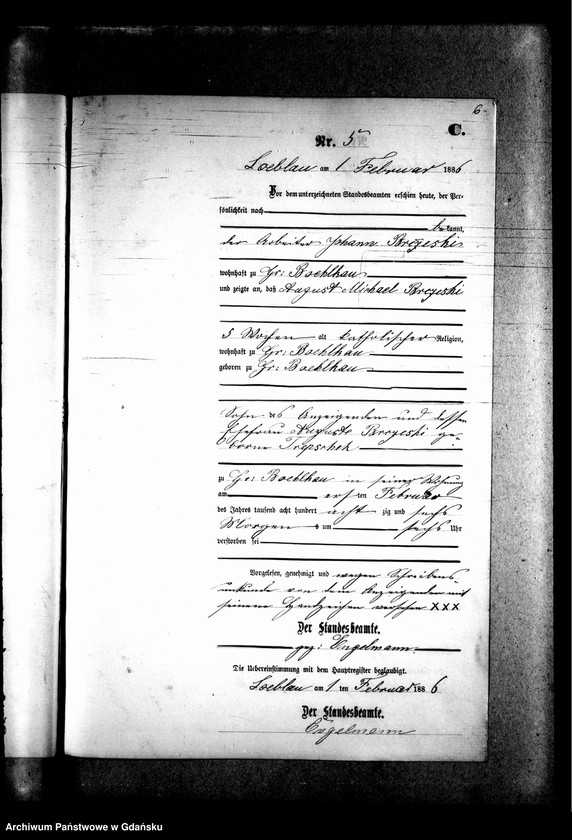 6.
C.
Nr. 5
Loeblau am 1 Februar 1886
Vor dem unterzeichneten Standesbeamten erschien heute, der Per-
sönlichkeit nach
bekannt,
der Arbeiter Johann Brzeski
wohnhaft zu Gr: Boehlkau
und zeigte an, daß August Michael Brzyeski
5 Wochen alt katholischer Religion,
wohnhaft zu Gr: Boehlkau
geboren zu Gr: Boehlkau
Sohn des Anzeigenden und dessen
Ehefrau Auguste Brzyeski ge-
borene
zu Gr: Boehlkau in seiner Wohnung
am ersten Februar
des Jahres tausend acht hundert acht zig und sechs
Morgens um sechs Uhr
verstorben sei
Vorgelesen, genehmigt und wegen Schreibens-
unkunde von dem Anzeigenden mit
seinem Handzeichen versehen XXX
Der Standesbeamte.
gez: Engelmann
Die Uebereinstimmung mit dem Hauptregister beglaubigt.
Loeblau am 1 ten Februar 1886
Der Standesbeamte.
Engelmann
Archiwum Państwowe w Gdańsku